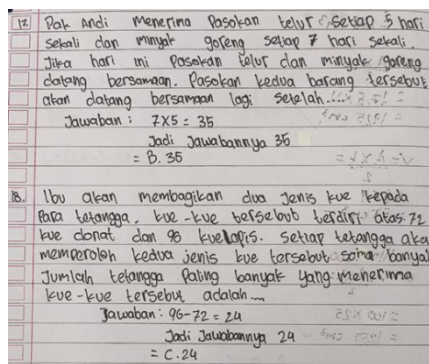 17. Pak Andi menerima Pasokan telur setiap 5 hari
sekali dan minyak goreng setiap 7 hari sekali.
Jika hari ini Pasokan telur dan minyak goreng
datang bersamaan. Pasokan kedua barang tersebut
akan datang bersamaan lagi setelah....
Jawaban : 7x5 = 35
Jadi Jawabannya 35
= B. 35
18. Ibu akan membagikan dua Jenis kue kepada
Para tetangga. kue-kue tersebut terdiri atas 72
kue donat dan 96 kue lapis. Setiap tetangga aka
memperoleh kedua jenis kue tersebut sama banyak
Jumlah tetangga Paling banyak yang menerima
kue-kue tersebut adalah....
Jawaban : 96-72 = 24
Jadi Jawabannya 24
= C. 24